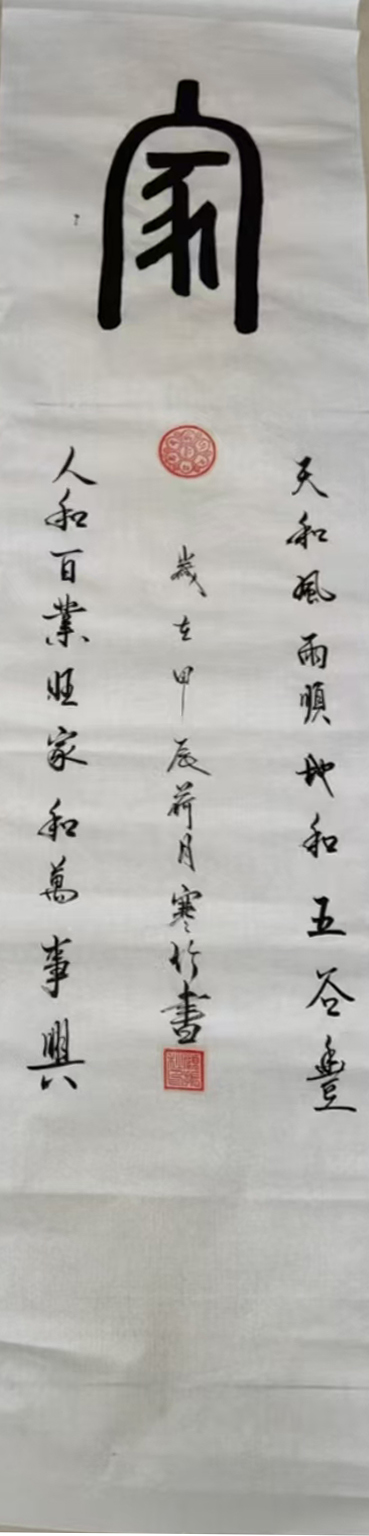 家
天和風雨順地和五谷豊
人和百業旺家和萬事興
歲在甲辰荷月寒竹書